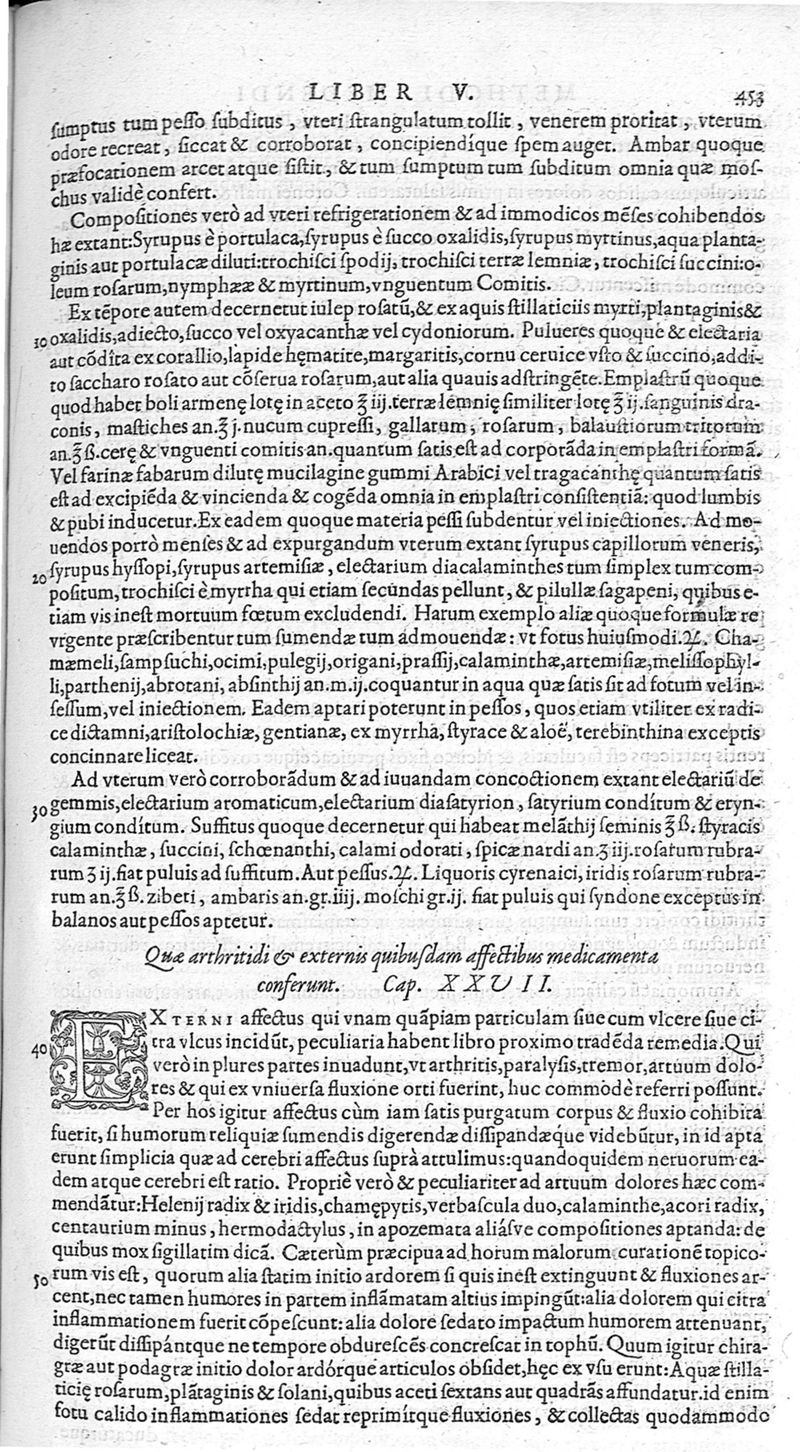 LIBER V. 453
sumptus tum pesso subditus, vteri strangulatum tollit, venerem proritat, vterum
odore recreat, siccat & corroborat, concipiendíque spem auget. Ambar quoque
præfocationem arcet atque sistit, & tum sumptum tum subditum omnia quæ mos-
chus validè confert.
Compositiones verò ad vteri refrigerationem & ad immodicos mẽses cohibendos
hæ extant: Syrupus è portulaca, syrupus è succo oxalidis, syrupus myrtinus, aqua planta-
ginis aut portulacæ diluti: trochisci spodij, trochisci terræ lemniæ, trochisci succini: o-
leum rosarum, nymphææ & myrtinum, vnguentum Comitis.
Ex tẽpore autem decernetur iulep rosatũ, & ex aquis stillaticiis myrti, plantaginis &
10 oxalidis, adiecto, succo vel oxyacanthæ vel cydoniorum. Pulueres quoque & electaria
aut cõdíta ex corallio, lapide hęmatite, margaritis, cornu ceruice vsto & succino, addi-
to saccharo rosato aut cõserua rosarum, aut alia quauis adstringẽte. Emplastrũ quoque
quod habet boli armenę lotę in aceto ℥ iij. terræ lemnię similiter lotę ℥ ij. sanguinis dra-
conis, mastiches an. ℥ j. nucum cupressi, gallarum, rosarum, balaustiorum tritorum
an. ℥ ß. cerę & vnguenti comitis an. quantum satis est ad corporãda in emplastri formã.
Vel farinæ fabarum dilutę mucilagine gummi Arabici vel tragacanthę quantum satis
est ad excipiẽda & vincienda & cogẽda omnia in emplastri consistentiã: quod lumbis
& pubi inducetur. Ex eadem quoque materia pessi subdentur vel iniectiones. Ad mo-
uendos porrò menses & ad expurgandum vterum extant syrupus capillorum veneris,
20 syrupus hyssopi, syrupus artemisiæ, electarium diacalaminthes tum simplex tum com-
positum, trochisci è myrrha qui etiam secundas pellunt, & pilullæ sagapeni, quibus e-
tiam vis inest mortuum fœtum excludendi. Harum exemplo aliæ quoque formulæ re
vrgente præscribentur tum sumendæ tum admouendæ: vt fotus huiusmodi. ℞. Cha-
mæmeli, sampsuchi, ocimi, pulegij, origani, prassij, calaminthæ, artemisiæ, melissophyl-
li, parthenij, abrotani, absinthij an. m. ij. coquantur in aqua quæ satis sit ad fotum vel in-
sessum, vel iniectionem. Eadem aptari poterunt in pessos, quos etiam vtiliter ex radi-
ce dictamni, aristolochiæ, gentianæ, ex myrrha, styrace & aloë, terebinthina exceptis
concinnare liceat.
Ad vterum verò corroborãdum & ad iuuandam concoctionem extant electariũ de
30 gemmis, electarium aromaticum, electarium diasatyrion, satyrium condítum & eryn-
gium condítum. Suffitus quoque decernetur qui habeat melãthij seminis ℥ ß. styracis
calaminthæ, succini, schœnanthi, calami odorati, spicæ nardi an. ʒ iij. rosarum rubra-
rum ʒ ij. fiat puluis ad suffitum. Aut pessus. ℞. Liquoris cyrenaici, iridis rosarum rubra-
rum an. ℥ ß. zibeti, ambaris an. gr. iiij. moschi gr. ij. fiat puluis qui syndone exceptus in
balanos aut pessos aptetur.
Quæ arthritidi & externis quibusdam affectibus medicamenta
conferunt. Cap. XXVII.
EXTERNI affectus qui vnam quãpiam particulam siue cum vlcere siue ci-
40 tra vlcus incidũt, peculiaria habent libro proximo tradẽda remedia. Qui
verò in plures partes inuadunt, vt arthritis, paralysis, tremor, artuum dolo-
res & qui ex vniuersa fluxione orti fuerint, huc commodè referri possunt.
Per hos igitur affectus cùm iam satis purgatum corpus & fluxio cohibita
fuerit, si humorum reliquiæ sumendis digerendæ dissipandæq́ue videbũtur, in id apta
erunt simplicia quæ ad cerebri affectus suprà attulimus: quandoquidem neruorum ea-
dem atque cerebri est ratio. Propriè verò & peculiariter ad artuum dolores hæc com-
mendãtur: Helenij radix & iridis, chamępytis, verbascula duo, calaminthe, acori radix,
centaurium minus, hermodactylus, in apozemata aliásve compositiones aptanda: de
quibus mox sigillatim dicã. Cæterùm præcipua ad horum malorum curationẽ topico-
50 rum vis est, quorum alia statim initio ardorem si quis inest extinguunt & fluxiones ar-
cent, nec tamen humores in partem inflãmatam altius impingũt: alia dolorem qui citra
inflammationem fuerit cõpescunt: alia dolore sedato impactum humorem attenuant,
digerũt dissipántque ne tempore obdurescẽs concrescat in tophũ. Quum igitur chira-
græ aut podagræ initio dolor ardórque articulos obsidet, hęc ex vsu erunt: Aquæ stilla-
ticię rosarum, plãtaginis & solani, quibus aceti sextans aut quadrãs affundatur. id enim
fotu calido inflammationes sedat reprimítque fluxiones, & collectas quodammodo